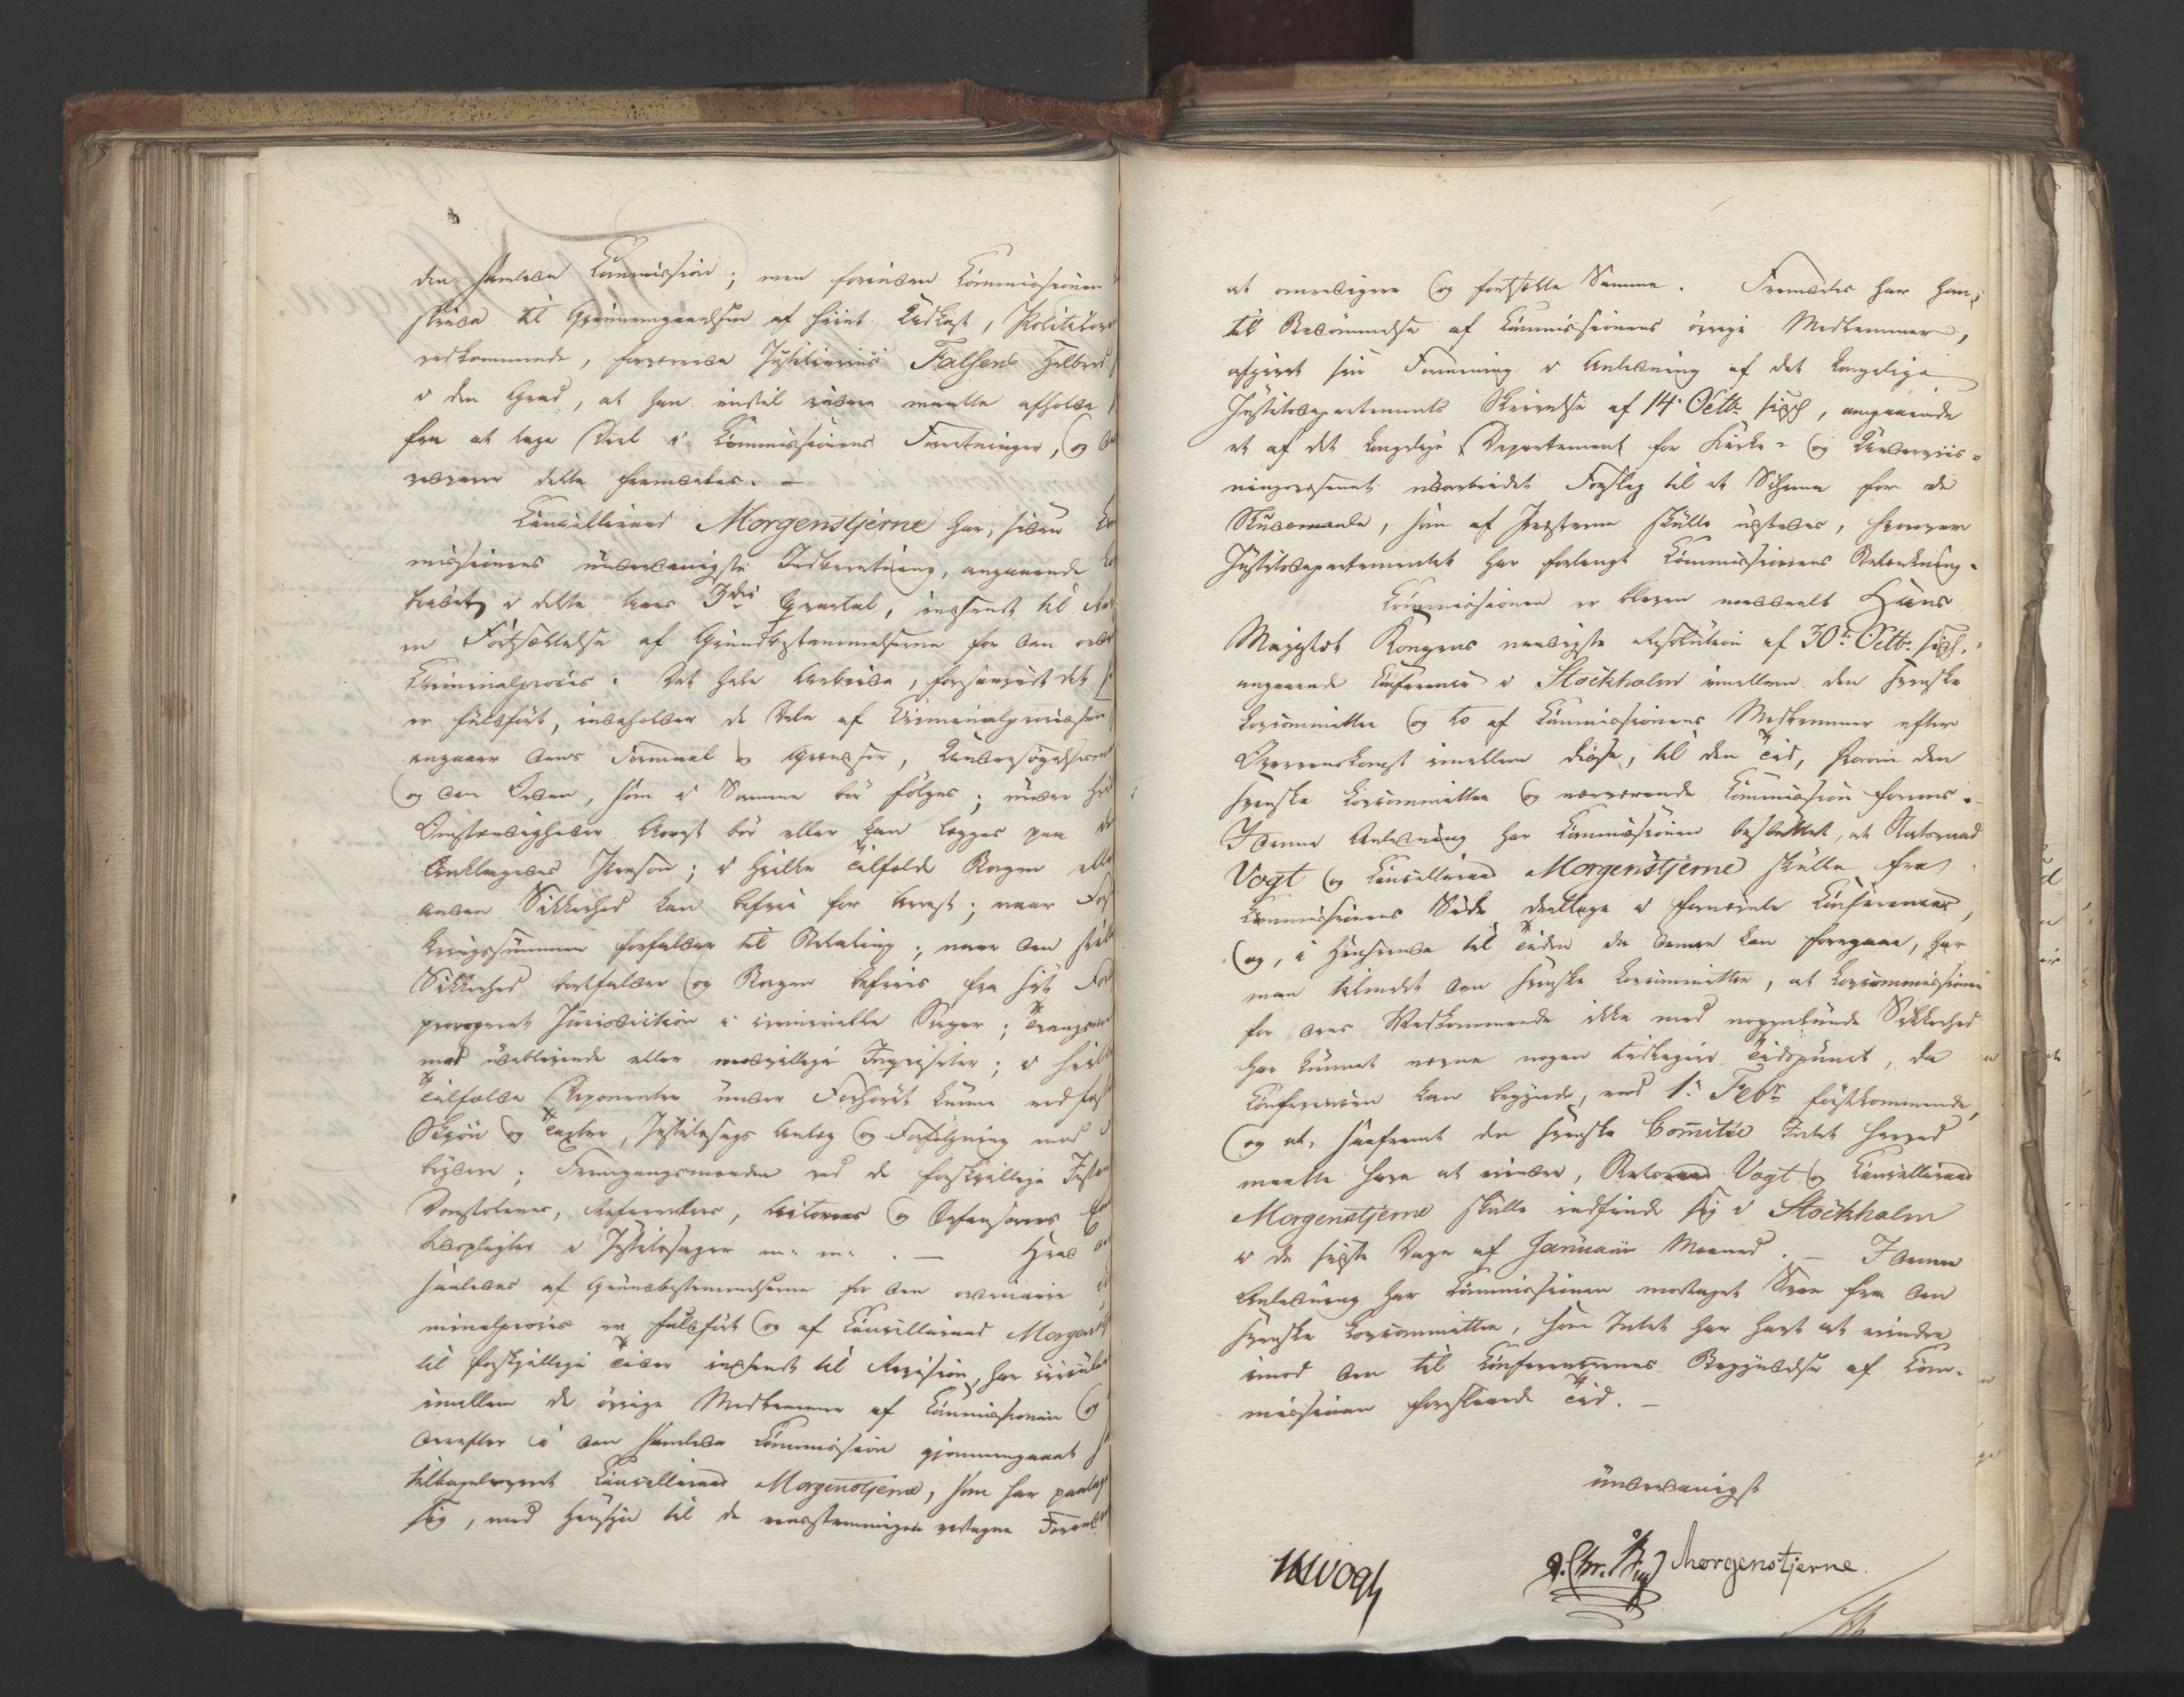 den samlede Commission; men forinden Commissionen
skred til Gjennemgaaelsen af hiint Udkast, Politilov
vedkommende, forværrede Justitiarius Falsens Helbred
i den Grad, at han indtil videre maatte afholde
fra at tage Deel i Commissionens Forretninger, og
vedvarer dette fremdeles. —
Cancelliraad Morgenstjerne har, siden Com
missionens underdanigste Indberetning, angaaende
beidet i dette Aars 3die Qvartal, indsendt til
en Fortsættelse af Grundbestemmelserne for den ordi
Criminalproces. Det hele Arbeide, forsaavidt det
er fuldført, indeholder de Dele af Criminalprocessen
angaaer dens Formaal og Grændser, Undersøgelserne
og den Orden, som i Samme bør følges; under hvi
Omstændigheder Arrest bør eller kan lægges paa
Anklagedes Person; i hvilke Tilfælde Borgen elle
anden Sikkerhed kan befrie for Arrest; naar
kringssummen forfalder til Betaling; naar den stil
Sikkerhed bortfalder og Borgen befries fra sit
prorogeret Jurisdiction i criminelle Sager; Tvangsmi
mod udeblivende eller modvillige Inqvisiter; i hvil
Tilfælde Deponenter under Forhøret kunne
Skjøn og Taxter, Justitssags Anlæg og Forfølgning mod
bydere; Fremgangsmaaden ved de forskjellige
Domstolene, Referenters, Actorers og Defensorers
beviisligter i Justitssager m: m: . — Hvad
saaledes af Grundbestemmelserne for den ordinaire
minalproces er fuldført og af Cancelliraad Morgenst
til forskjellige Tider indsendt til Revision, har circuleret
imellem de øvrige Medlemmer af Commissionen og
derefter i den samlede Commission gjennemgaaet
tilbageleveret Cancelliraad Morgenstjerne, som har paatag
sig, med Hensyn til de eenstemmigen vedtagne Foran
at omredigere og fortsætte Samme. Fremdeles har han,
til Bedømmelse af Commissionens øvrige Medlemmer,
afgivet sin Formening i Anledning af det Kongelige
Justitsdepartements Skrivelse af 14de Octbr sidst, angaaende
et af det Kongelige Departement for Kirke- og Underviis-
ningsvæsenet udarbeidet Forslag til et Schema for de
Skudsmaale, som af Præsterne skulle udstedes, hvorover
Justitsdepartementet har forlangt Commissionens Betænkning.
Commissionen er bleven meddeelt Hans
Majestæt Kongens naadigste Resolution af 30te Octbr sidst,
angaaende Conference i Stockholm imellem den svenske
Lovcommittee og to af Commissionens Medlemmer efter
Overeenskomst imellem disse, til den Tid, hvorom den
svenske Lovcommittee og nærværende Commission forenes.
I denne Anledning har Commissionen besluttet, at Statsraad
Vogt og Cancelliraad Morgenstjerne skulle fra
Commissionens Side deeltage i fornævnte Conferencer,
og, i Henseende til Tiden da denne kan foregaae, har
man tilmeldt den svenske Lovcommittee, at Lovcommissionen
for dens Vedkommende ikke med nogenlunde Sikkerhed
har kunnet nævne nogen tidligere Tidspunct, da
Conferencen kan begynde, end 1te Febr førstkommende,
og at, saafremt den svenske Comitée Intet herved
maatte have at erindre, Statsraad Vogt og Cancelliraad
Morgenstjerne skulle indfinde sig i Stockholm
i de sidste Dage af Januarii Maaned. — I denne
Anledning har Commissionen modtaget Svar fra den
svenske Lovcommittee, som Intet har havt at erindre
imod den til Conferencernes Begyndelse af Com-
missionen foreslaaede Tid. —
underdanigst
Vogt
Morgenstjerne.